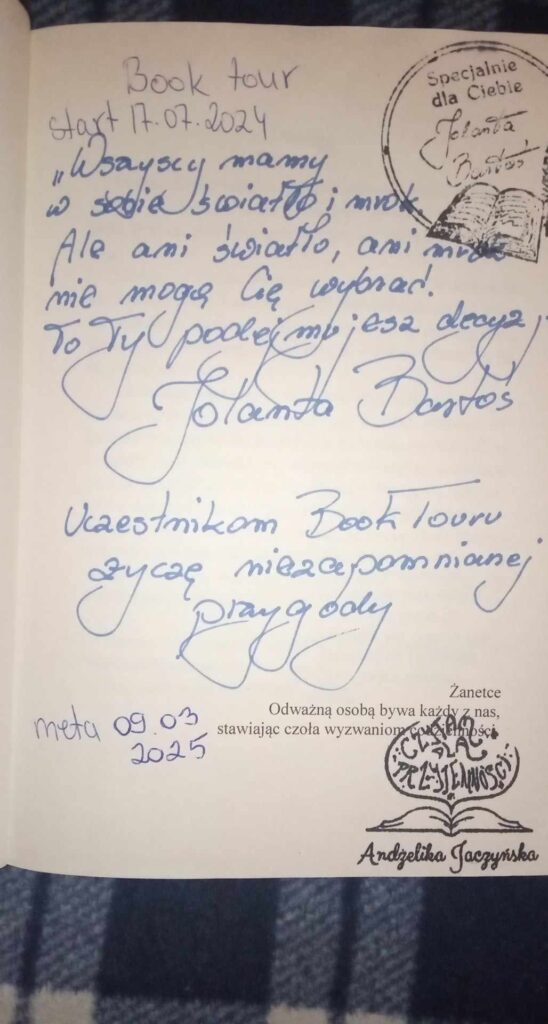 Book tour
start 17.07.2024
Specjalnie
dla Ciebie
Jolanta
Bartoś
„Wszyscy mamy
w sobie światło i mrok
Ale ani światło, ani mrok
nie mogą Cię wybrać.
To Ty podejmujesz decyzj
Jolanta Bartoś
Uczestnikom Book Touru
życzę niezapomnianej
przygody
Żanetce
Odważną osobą bywa każdy z nas,
stawiając czoła wyzwaniom codzienności.
meta 09.03
2025
CZYTAM
DLA
PRZYJEMNOŚCI
Andżelika Jaczyńska